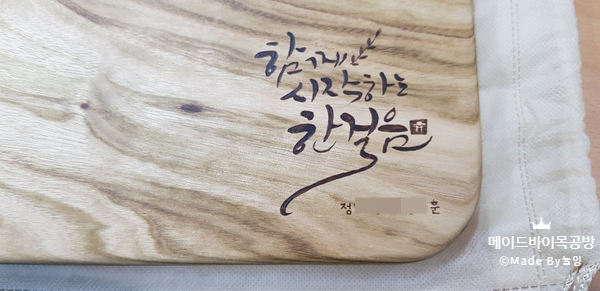 함께
시작하는
한걸음
정 훈
메이드바이목공방
©Made By놀잉